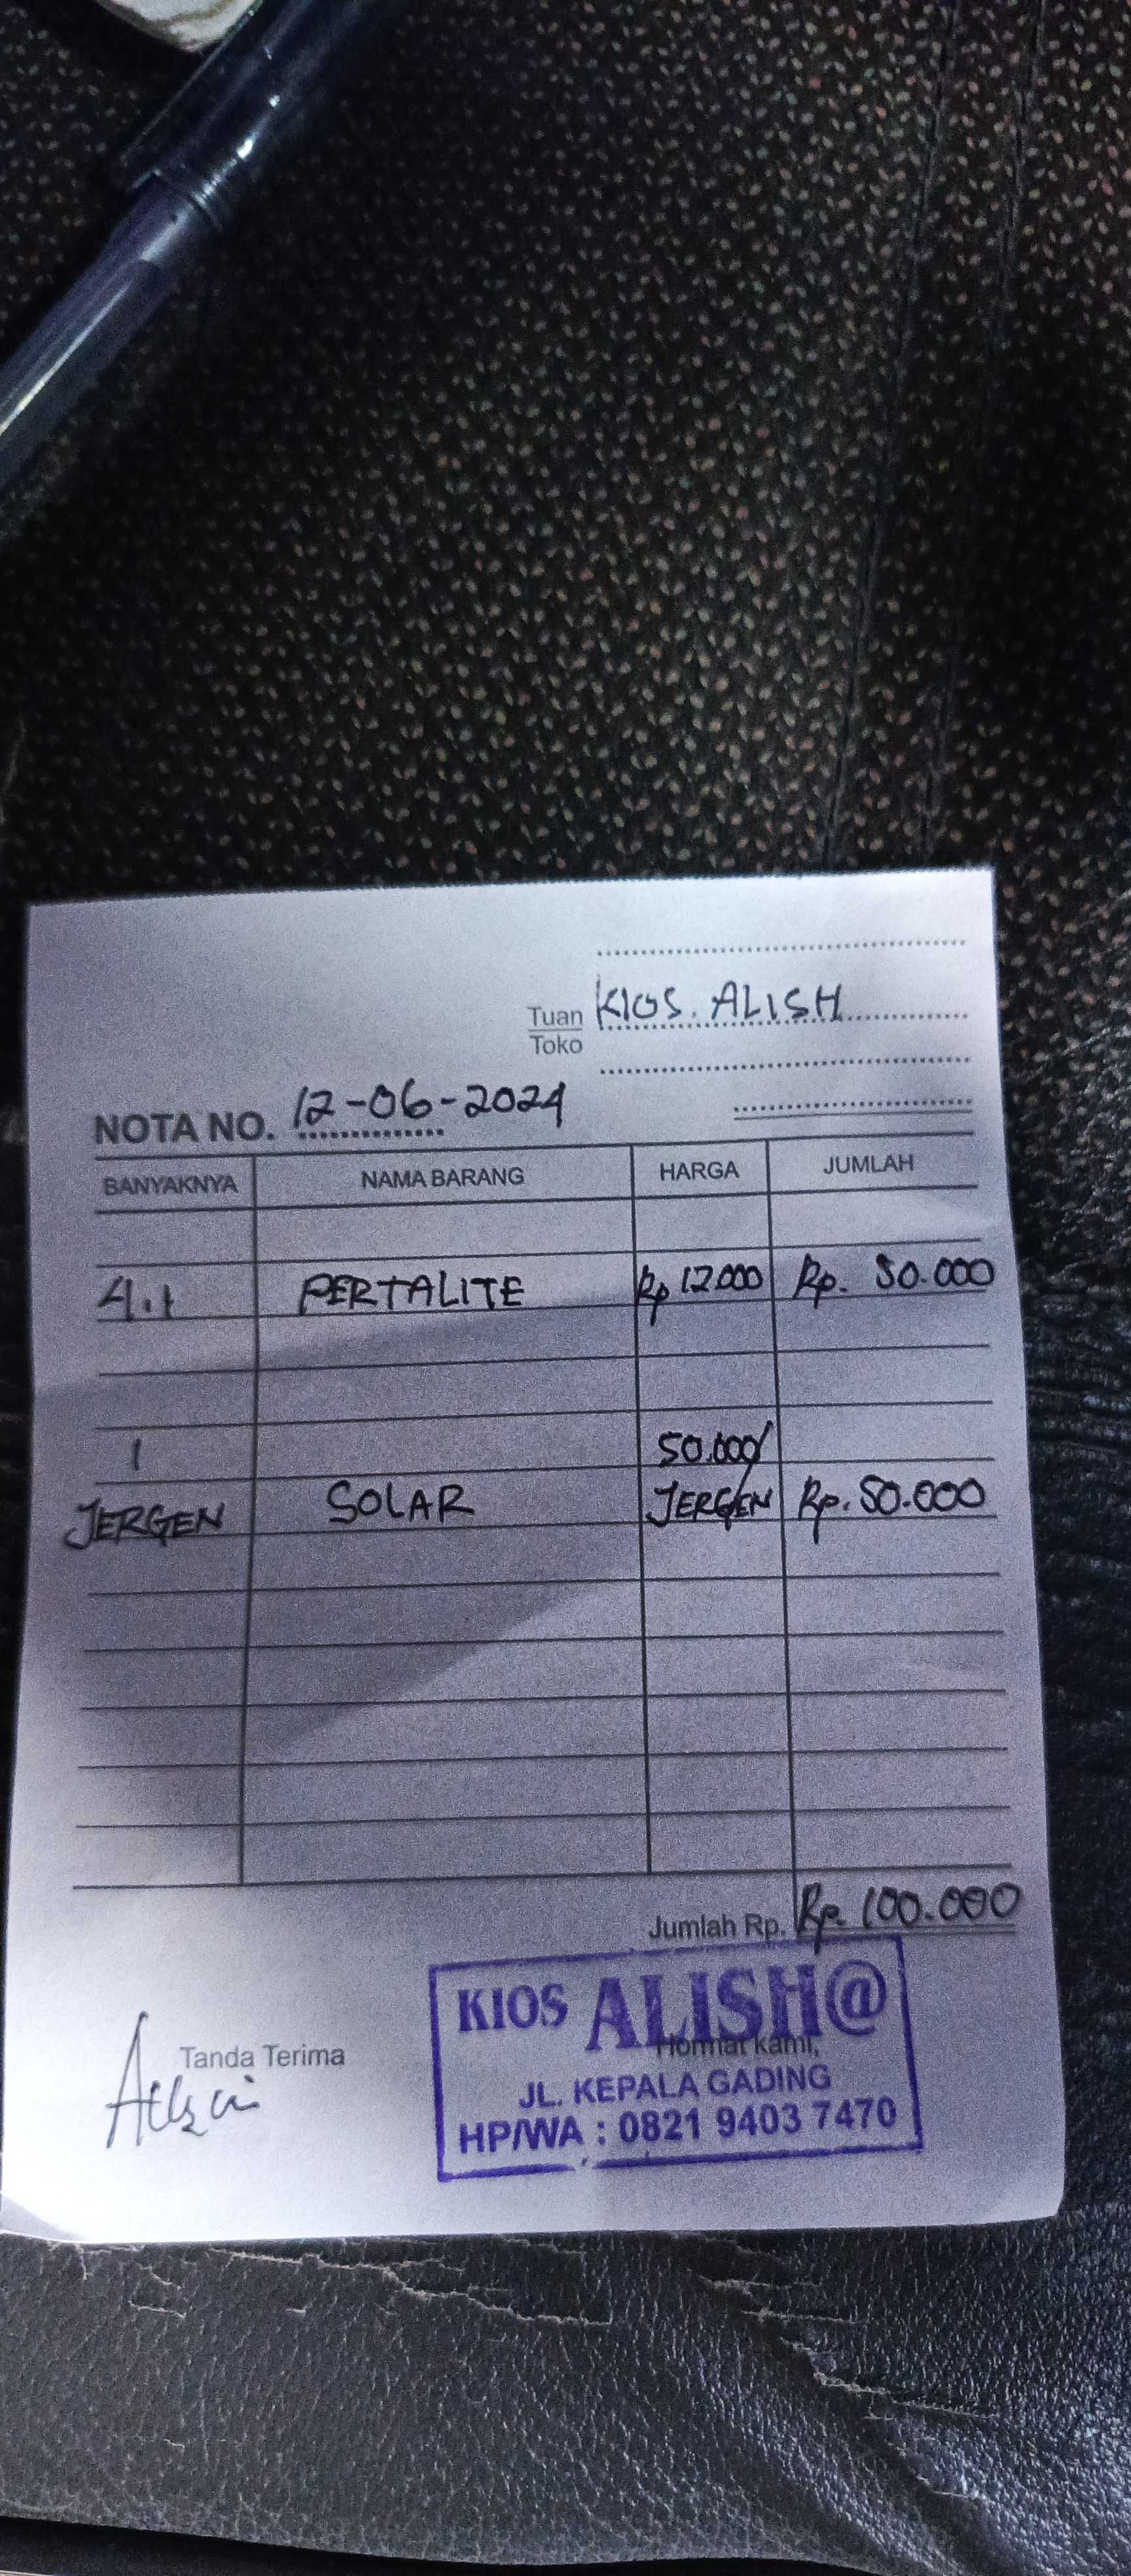 Tuan KIOS. ALISH
Toko
NOTA NO. 12-06-2024
BANYAKNYA NAMA BARANG HARGA JUMLAH
PERTALITE Rp 12.000 Rp. 50.000
1 50.000/
JERGEN SOLAR JERGEN Rp. 50.000
Jumlah Rp. Rp. 100.000
KIOS ALISH@
Tanda Terima Hormat kami,
JL. KEPALA GADING
HP/WA : 0821 9403 7470